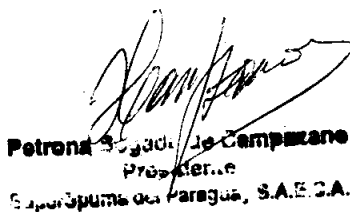 Petrona Bogado de Campuzano
Presidente
Superspuma del Paraguay, S.A.E.C.A.